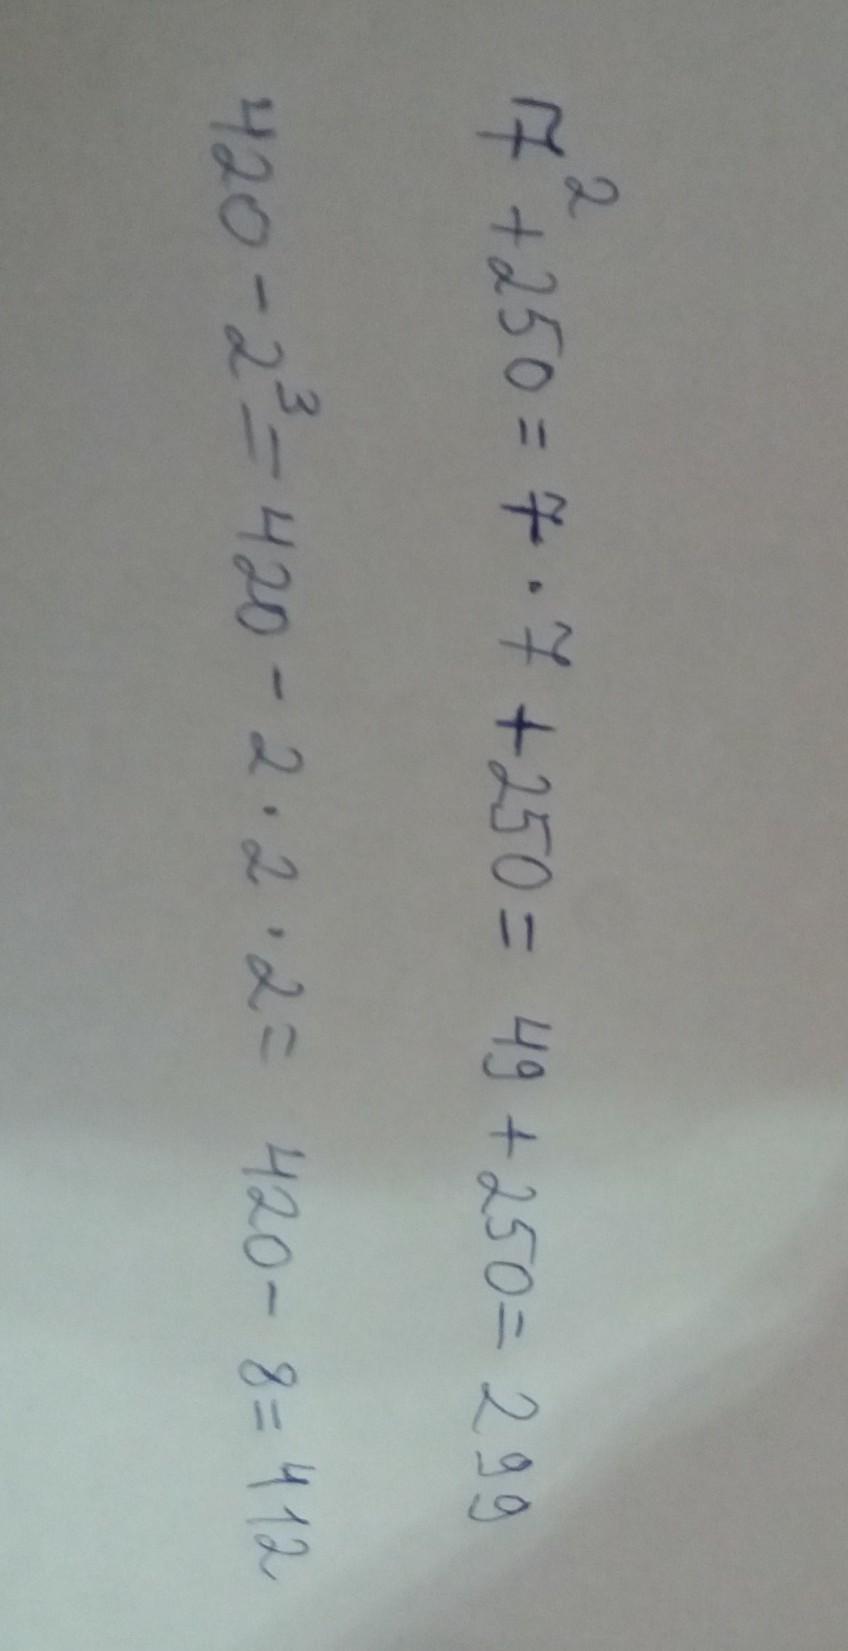 7² + 250 = 7 · 7 + 250 = 49 + 250 = 299
420 - 2³ = 420 - 2 · 2 · 2 = 420 - 8 = 412